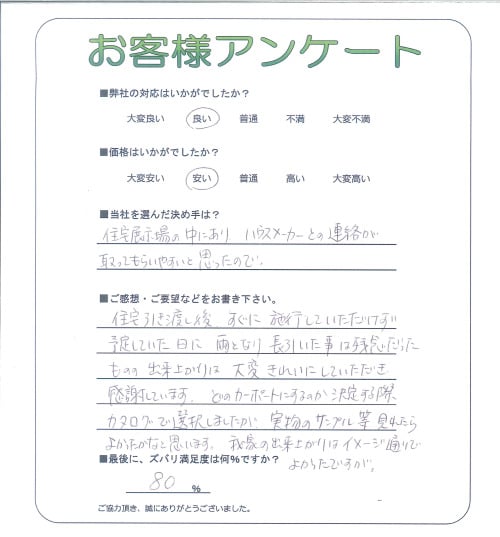 お客様アンケート
■弊社の対応はいかがでしたか？
大変良い 良い 普通 不満 大変不満
■価格はいかがでしたか？
大変安い 安い 普通 高い 大変高い
■当社を選んだ決め手は？
住宅展示場の中にあり ハウスメーカーとの連絡が
取ってもらいやすいと思ったので。
■ご感想・ご要望などをお書き下さい。
住宅引き渡し後 すぐに 施行していただけず
予定していた日に 雨となり 長引いた事は残念だった
ものの 出来上がりは 大変 きれいにしていただき
感謝しています。 どのカーポートにするのか 決定する際
カタログで選択しましたが 実物のサンプル等 見れたら
よかったかなと思います。 我家の出来上がりはイメージ通りで
よかったですが。
■最後に、ズバリ満足度は何%ですか？
80 %
ご協力頂き、誠にありがとうございました。